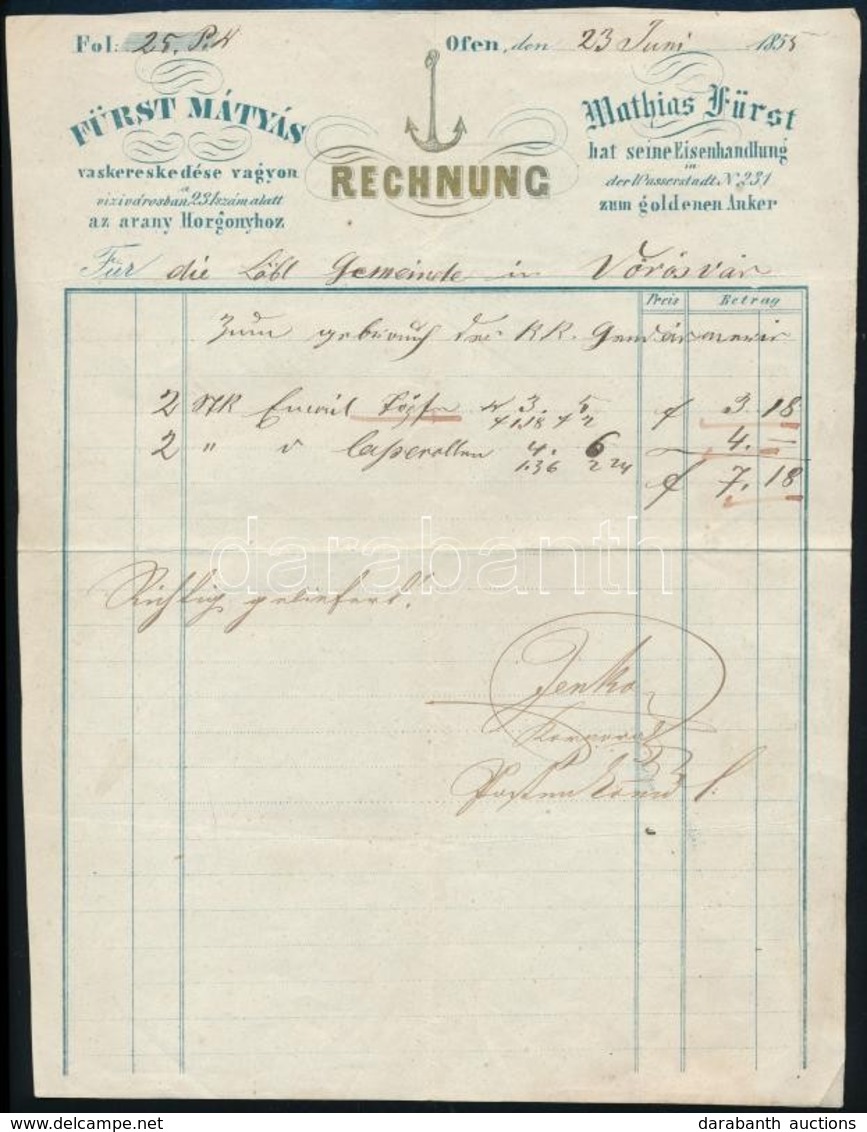 Fol: 25. P. N
Ofen, den 23 Juni 1855
FÜRST MÁTYÁS
vaskereskedése vagyon
a
vizivárosban 231 szám alatt
az arany Horgonyhoz
RECHNUNG
Mathias Fürst
hat seine Eisenhandlung
in
der Wasserstadt No 231
zum goldenen Anker
Für die Löbl Gemeinde in Vörösvár
Preis Betrag
Zum gebrauch der KK. Gendarmerie
2 Stk Email Töpfe N 3. 5 f 3. 18
1.18 2
2 " " Casserollen 4. 6 4. —
1.36 2 24 f 7. 18
Richtig geliefert!
darabanth
Jenko
Korporal
Posten
www.delcampe.net
darabanth auctions